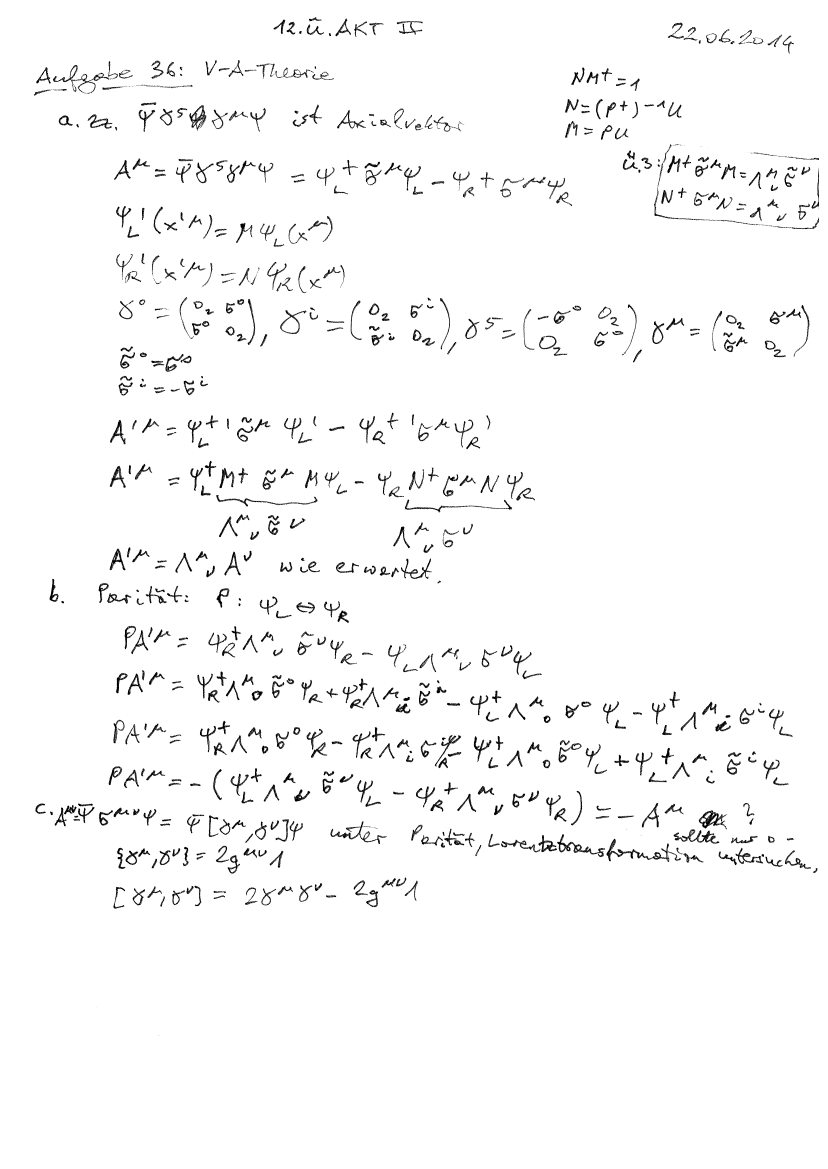 12. Ü. AKT II
22.06.2014
Aufgabe 36: V-A-Theorie
NM⁺ = 1
N = (P⁺)⁻¹U
M = PU
a. zz. Ψ̄γ⁵γ^μΨ ist Axialvektor
Ü.3: M⁺σ̃^μM = Λ^μ_ν σ̃^ν
N⁺σ^μN = Λ^μ_ν σ^ν
A^μ = Ψ̄γ⁵γ^μΨ = Ψ_L⁺σ̃^μΨ_L − Ψ_R⁺σ^μΨ_R
Ψ_L'(x'^μ) = MΨ_L(x^μ)
Ψ_R'(x'^μ) = NΨ_R(x^μ)
γ⁰ = (0₂ σ⁰ σ⁰ 0₂), γ^i = (0₂ σ^i σ̃^i 0₂), γ⁵ = (−σ⁰ 0₂ 0₂ σ⁰), γ^μ = (0₂ σ^μ σ̃^μ 0₂)
σ̃⁰ = σ⁰
σ̃^i = −σ^i
A'^μ = Ψ_L⁺'σ̃^μ Ψ_L' − Ψ_R⁺'σ^μΨ_R'
A'^μ = Ψ_L⁺M⁺ σ̃^μ MΨ_L − Ψ_R N⁺σ^μNΨ_R
Λ^μ_ν σ̃^ν Λ^μ_ν σ^ν
A'^μ = Λ^μ_ν A^ν wie erwartet.
b. Parität: P: Ψ_L ⇔ Ψ_R
PA'^μ = Ψ_R⁺Λ^μ_ν σ̃^νΨ_R − Ψ_LΛ^μ_ν σ^νΨ_L
PA'^μ = Ψ_R⁺Λ^μ_0 σ̃⁰Ψ_R + Ψ_R⁺Λ^μ_i σ̃^i − Ψ_L⁺Λ^μ_0 σ⁰Ψ_L − Ψ_L⁺Λ^μ_i σ^iΨ_L
PA'^μ = Ψ_R⁺Λ^μ_0 σ⁰Ψ_R − Ψ_R⁺Λ^μ_i σ^iΨ_R − Ψ_L⁺Λ^μ_0 σ̃⁰Ψ_L + Ψ_L⁺Λ^μ_i σ̃^iΨ_L
PA'^μ = −(Ψ_L⁺Λ^μ_ν σ̃^νΨ_L − Ψ_R⁺Λ^μ_ν σ^νΨ_R) = −A^μ ?
c. A^μν = Ψ̄σ^μνΨ = Ψ̄[γ^μ,γ^ν]Ψ unter Parität, Lorentztransformation untersuchen,
sollte nur 0 −
{γ^μ,γ^ν} = 2g^μν 1
[γ^μ,γ^ν] = 2γ^μγ^ν − 2g^μν 1